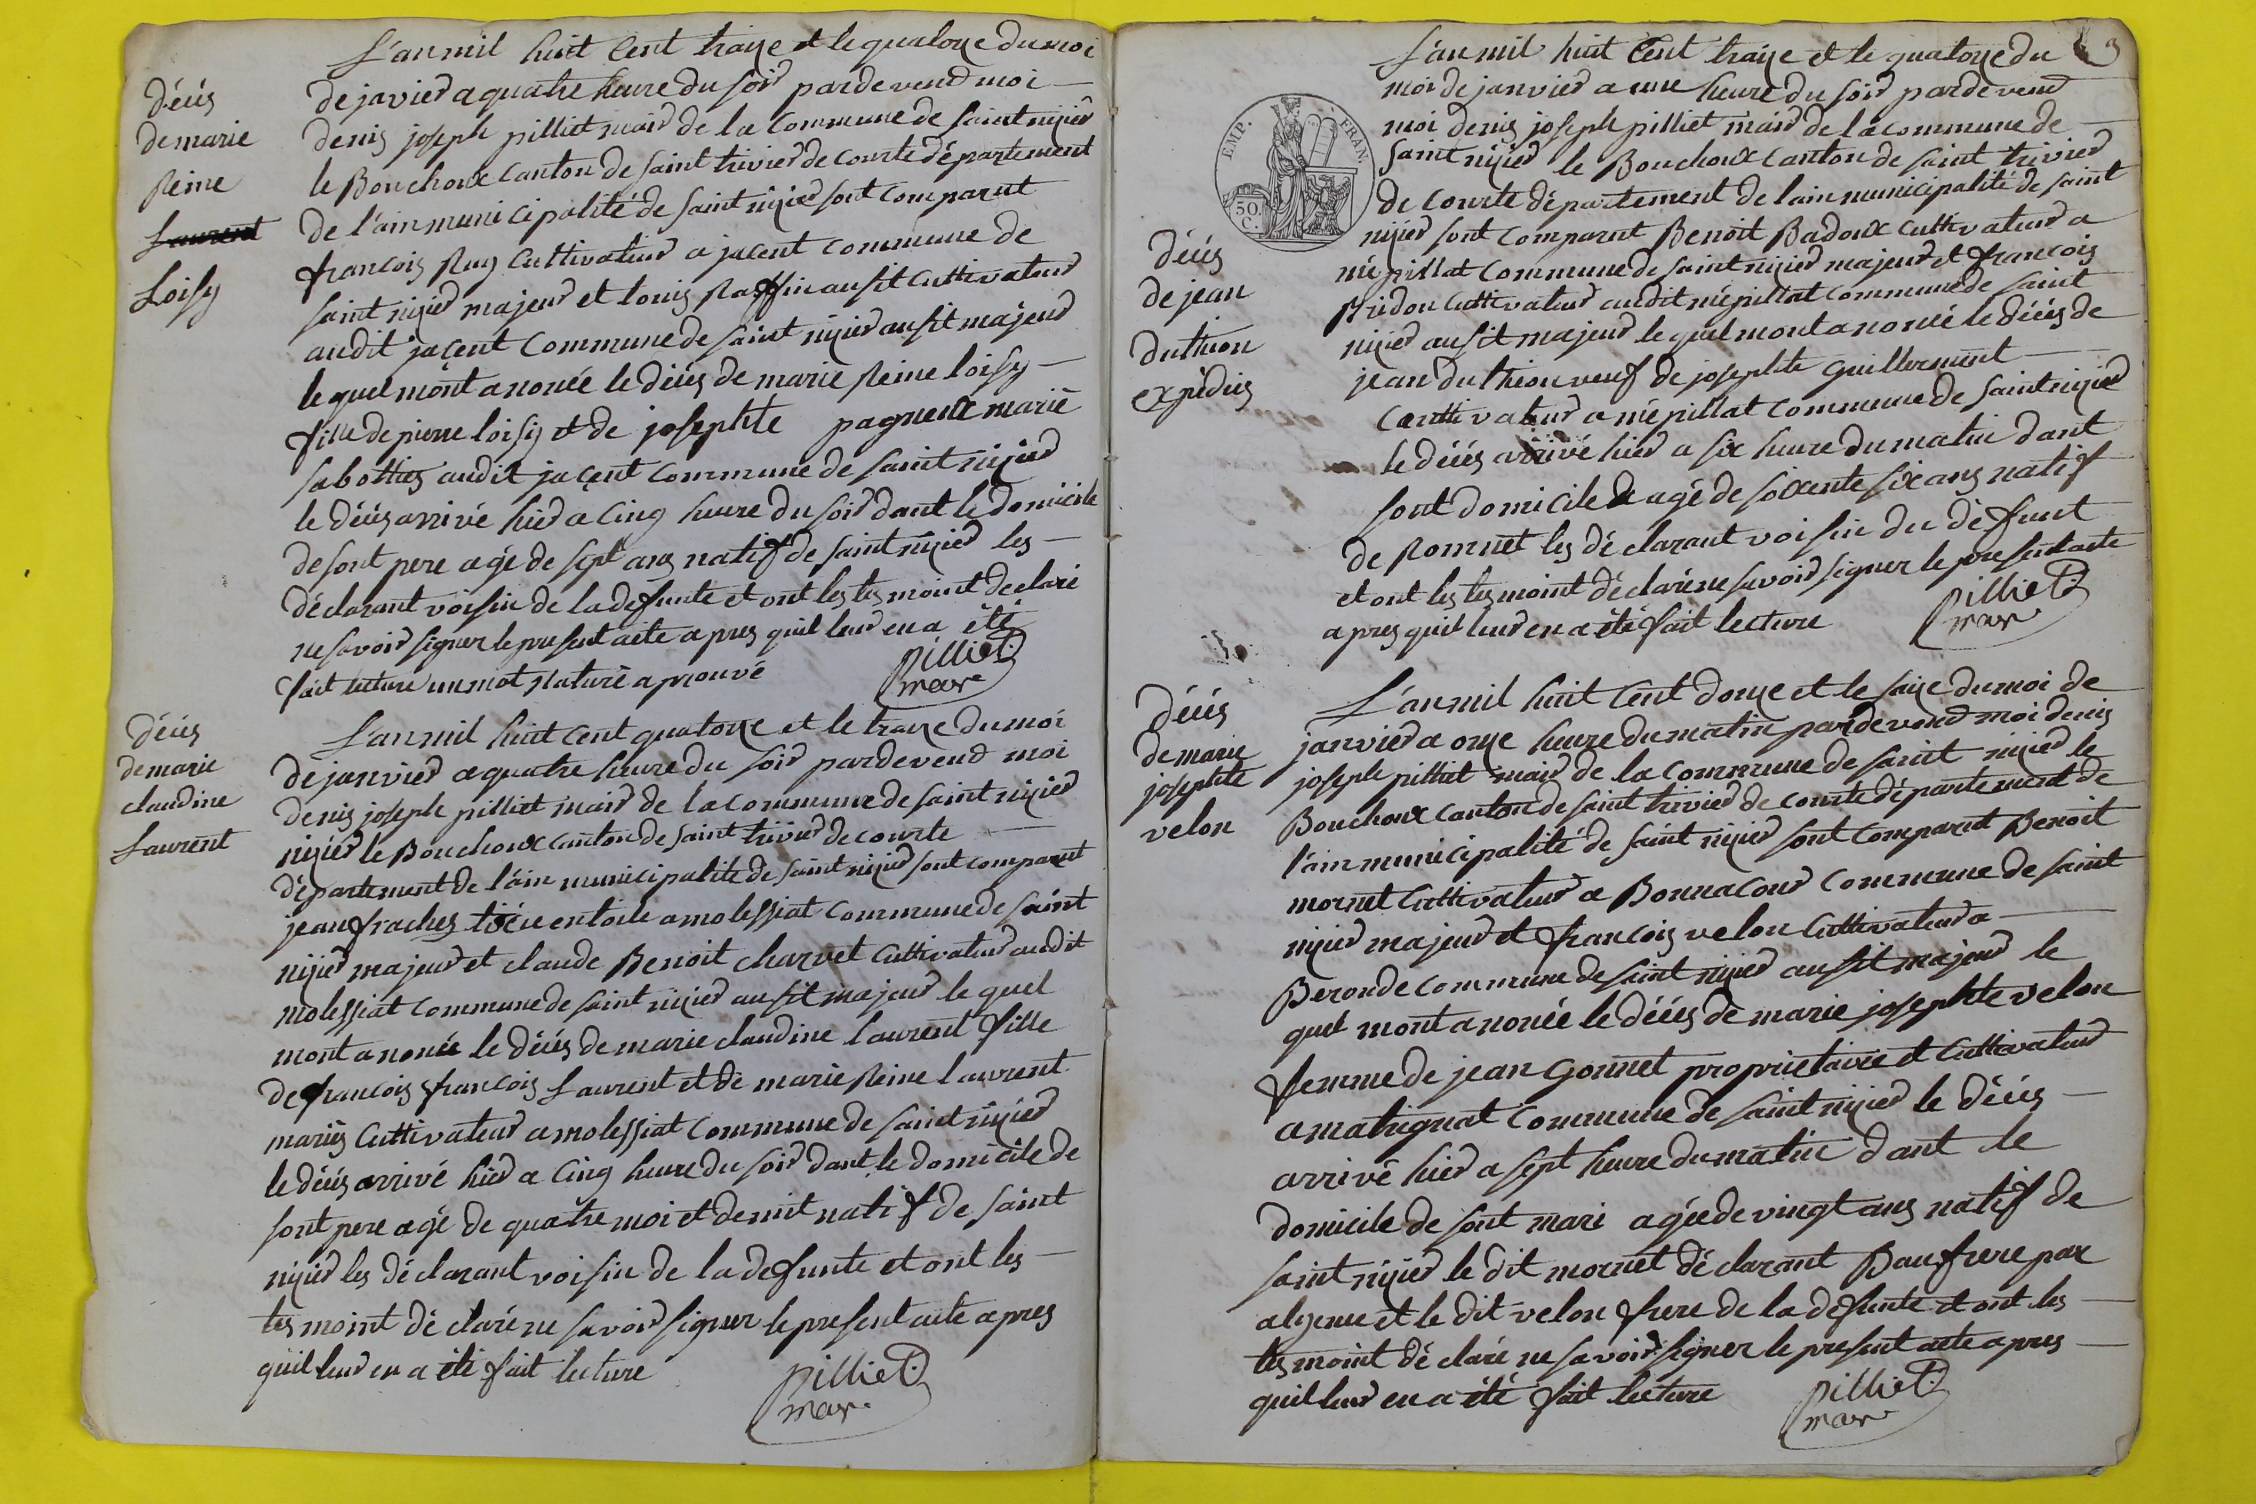 L'an mil huit cent traize et le quatorze du moi
de javier a quatre heure du soir pardevend moi
denis joseph pilliet mair de la commune de saint nizier
le Bouchoux canton de saint trivier de courte département
de l'ain municipalité de saint nizier sont comparut
françois Ruy cultivateur a jacent commune de
saint nizier majeur et louis Raffin ausit cultivateur
audit jaçent commune de saint nizier ausit majeur
le quel mont anoncé le décés de marie Reine loisy
fille de pierre loisy et de josephte pagneux marié
sabotties audit jaçent commune de saint nizier
le décés arrivé hier a cinq heure du soir dant le domicile
de sont pere agé de sept ans natif de saint nizier les
déclarant voisin de la defunte et ont les tesmoint declaré
ne savoir signer le present acte apres quil leur en a été
fait lecture un mot raturé aprouvé
pilliet
mair
décés
de marie
Reine
Laurent
Loisy
L'an mil huit cent quatorze et le traize du moi
de janvier a quatre heure du soir pardevend moi
denis joseph pilliet mair de la commune de saint nizier
nizier le Bouchoux canton de saint trivier de courte
département de l'ain municipalité de saint nizier sont comparut
jean fraches ticeu en toile a molessiat commune de saint
nizier majeur et claude Benoit charvet cultivateur audit
molessiat commune de saint nizier ausit majeur le quel
mont anoncé le décés de marie claudine laurent fille
de françois françois Laurent et de marie Reine laurent
mariés cultivateur a molessiat commune de saint nizier
le décés arrivé hier a cinq heure du soir dant le domicile de
sont pere agé de quatre moi et demit natif de saint
nizier les déclarant voisin de la defunte et ont les
tesmoint déclaré ne savoir signer le present acte apres
quil leur en a été fait lecture
pilliet
mair
décés
de marie
claudine
Laurent
3
L'an mil huit cent traize et le quatorze du
moi de janvier a une heure du soir pardevend
moi denis joseph pilliet mair de la commune de
saint nizier le Bouchoux canton de saint trivier
de courte département de lain municipalité de saint
nizier sont comparut Benoit Badoux cultivateur a
mépillat commune de saint nizier majeur et françois
Pridon cultivateur audit mépillat commune de saint
nizier ausit majeur le quel mont anoncé le décés de
jean duthion veuf de josephte guillermint
cultivateur a mépillat commune de saint nizier
le décés arrivé hier a six heure du matin dant
sont domicile agé de soixente six ans natif
de Romnet les déclarant voisin du défunt
et ont les tesmoint déclaré ne savoir signer le present acte
apres quil leur en a été fait lecture
pilliet
mair
EMP. FRAN.
50.
C.
décés
de jean
duthion
expédiés
L'an mil huit cent douze et le saize du moi de
janvier a onze heure du matin pardevend moi denis
joseph pilliet mair de la commune de saint nizier le
Bouchoux canton de saint trivier de courte département de
l'ain municipalité de saint nizier sont comparut Benoit
mornet cultivateur a Bonnacour commune de saint
nizier majeur et françois velon cultivateur a
Beronde commune de saint nizier ausit majeur le
quel mont anoncé le décés de marie josephte velon
femme de jean gonnet proprietaire et cultivateur
a matrignat commune de saint nizier le décés
arrivé hier a sept heure du matin dant le
domicile de sont mari agée de vingt ans natif de
saint nizier le dit mornet déclarant Baufrere par
alyence et le dit velon frere de la defunte et ont les
tesmoint déclaré ne savoir signer le present acte apres
quil leur en a été fait lecture
pilliet
mair
décés
de marie
josephte
velon